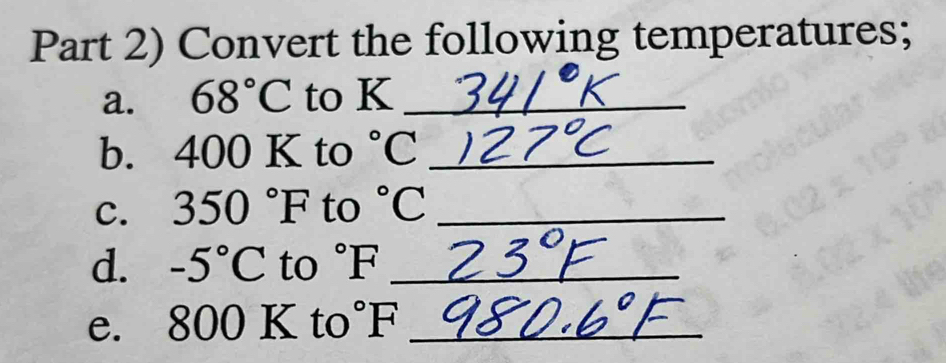 Part 2) Convert the following temperatures;
a. 68°C to K 341°K
b. 400 K to °C 127°C
c. 350 °F to °C
d. -5°C to °F 23°F
e. 800 K to°F 980.6°F